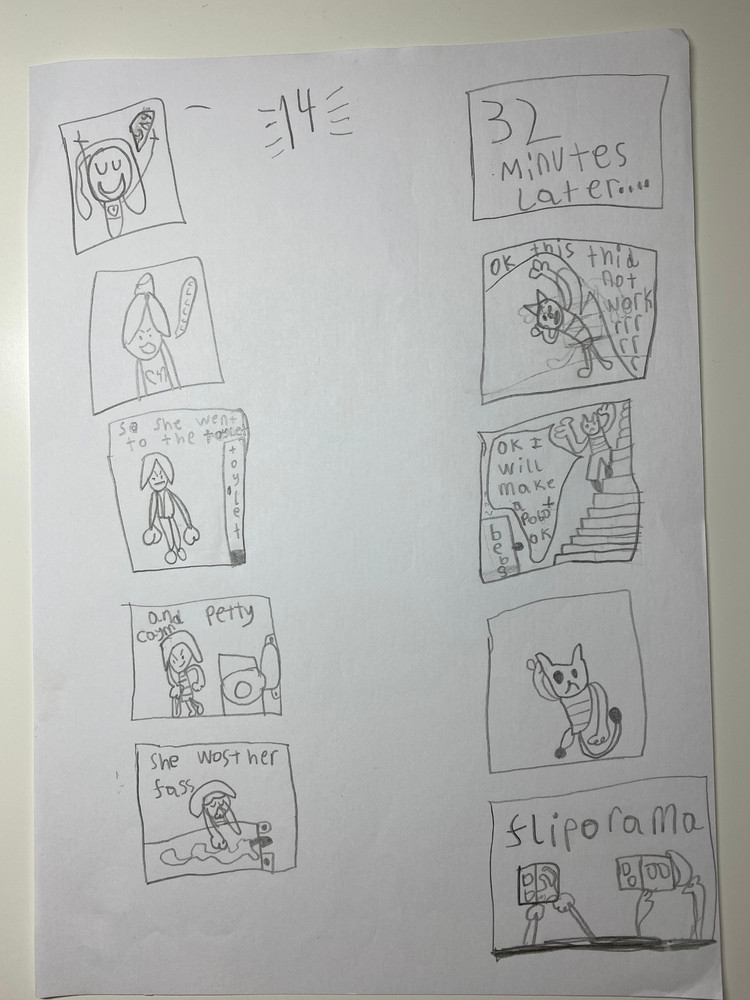 14
so she went
to the toylet
toylet
and petty
caym
she wost her
fass
32
Minutes
Later....
OK this thid
not
work
rrr
rr
r
OK I
will
make
a
robot
OK
bebs
fliporama